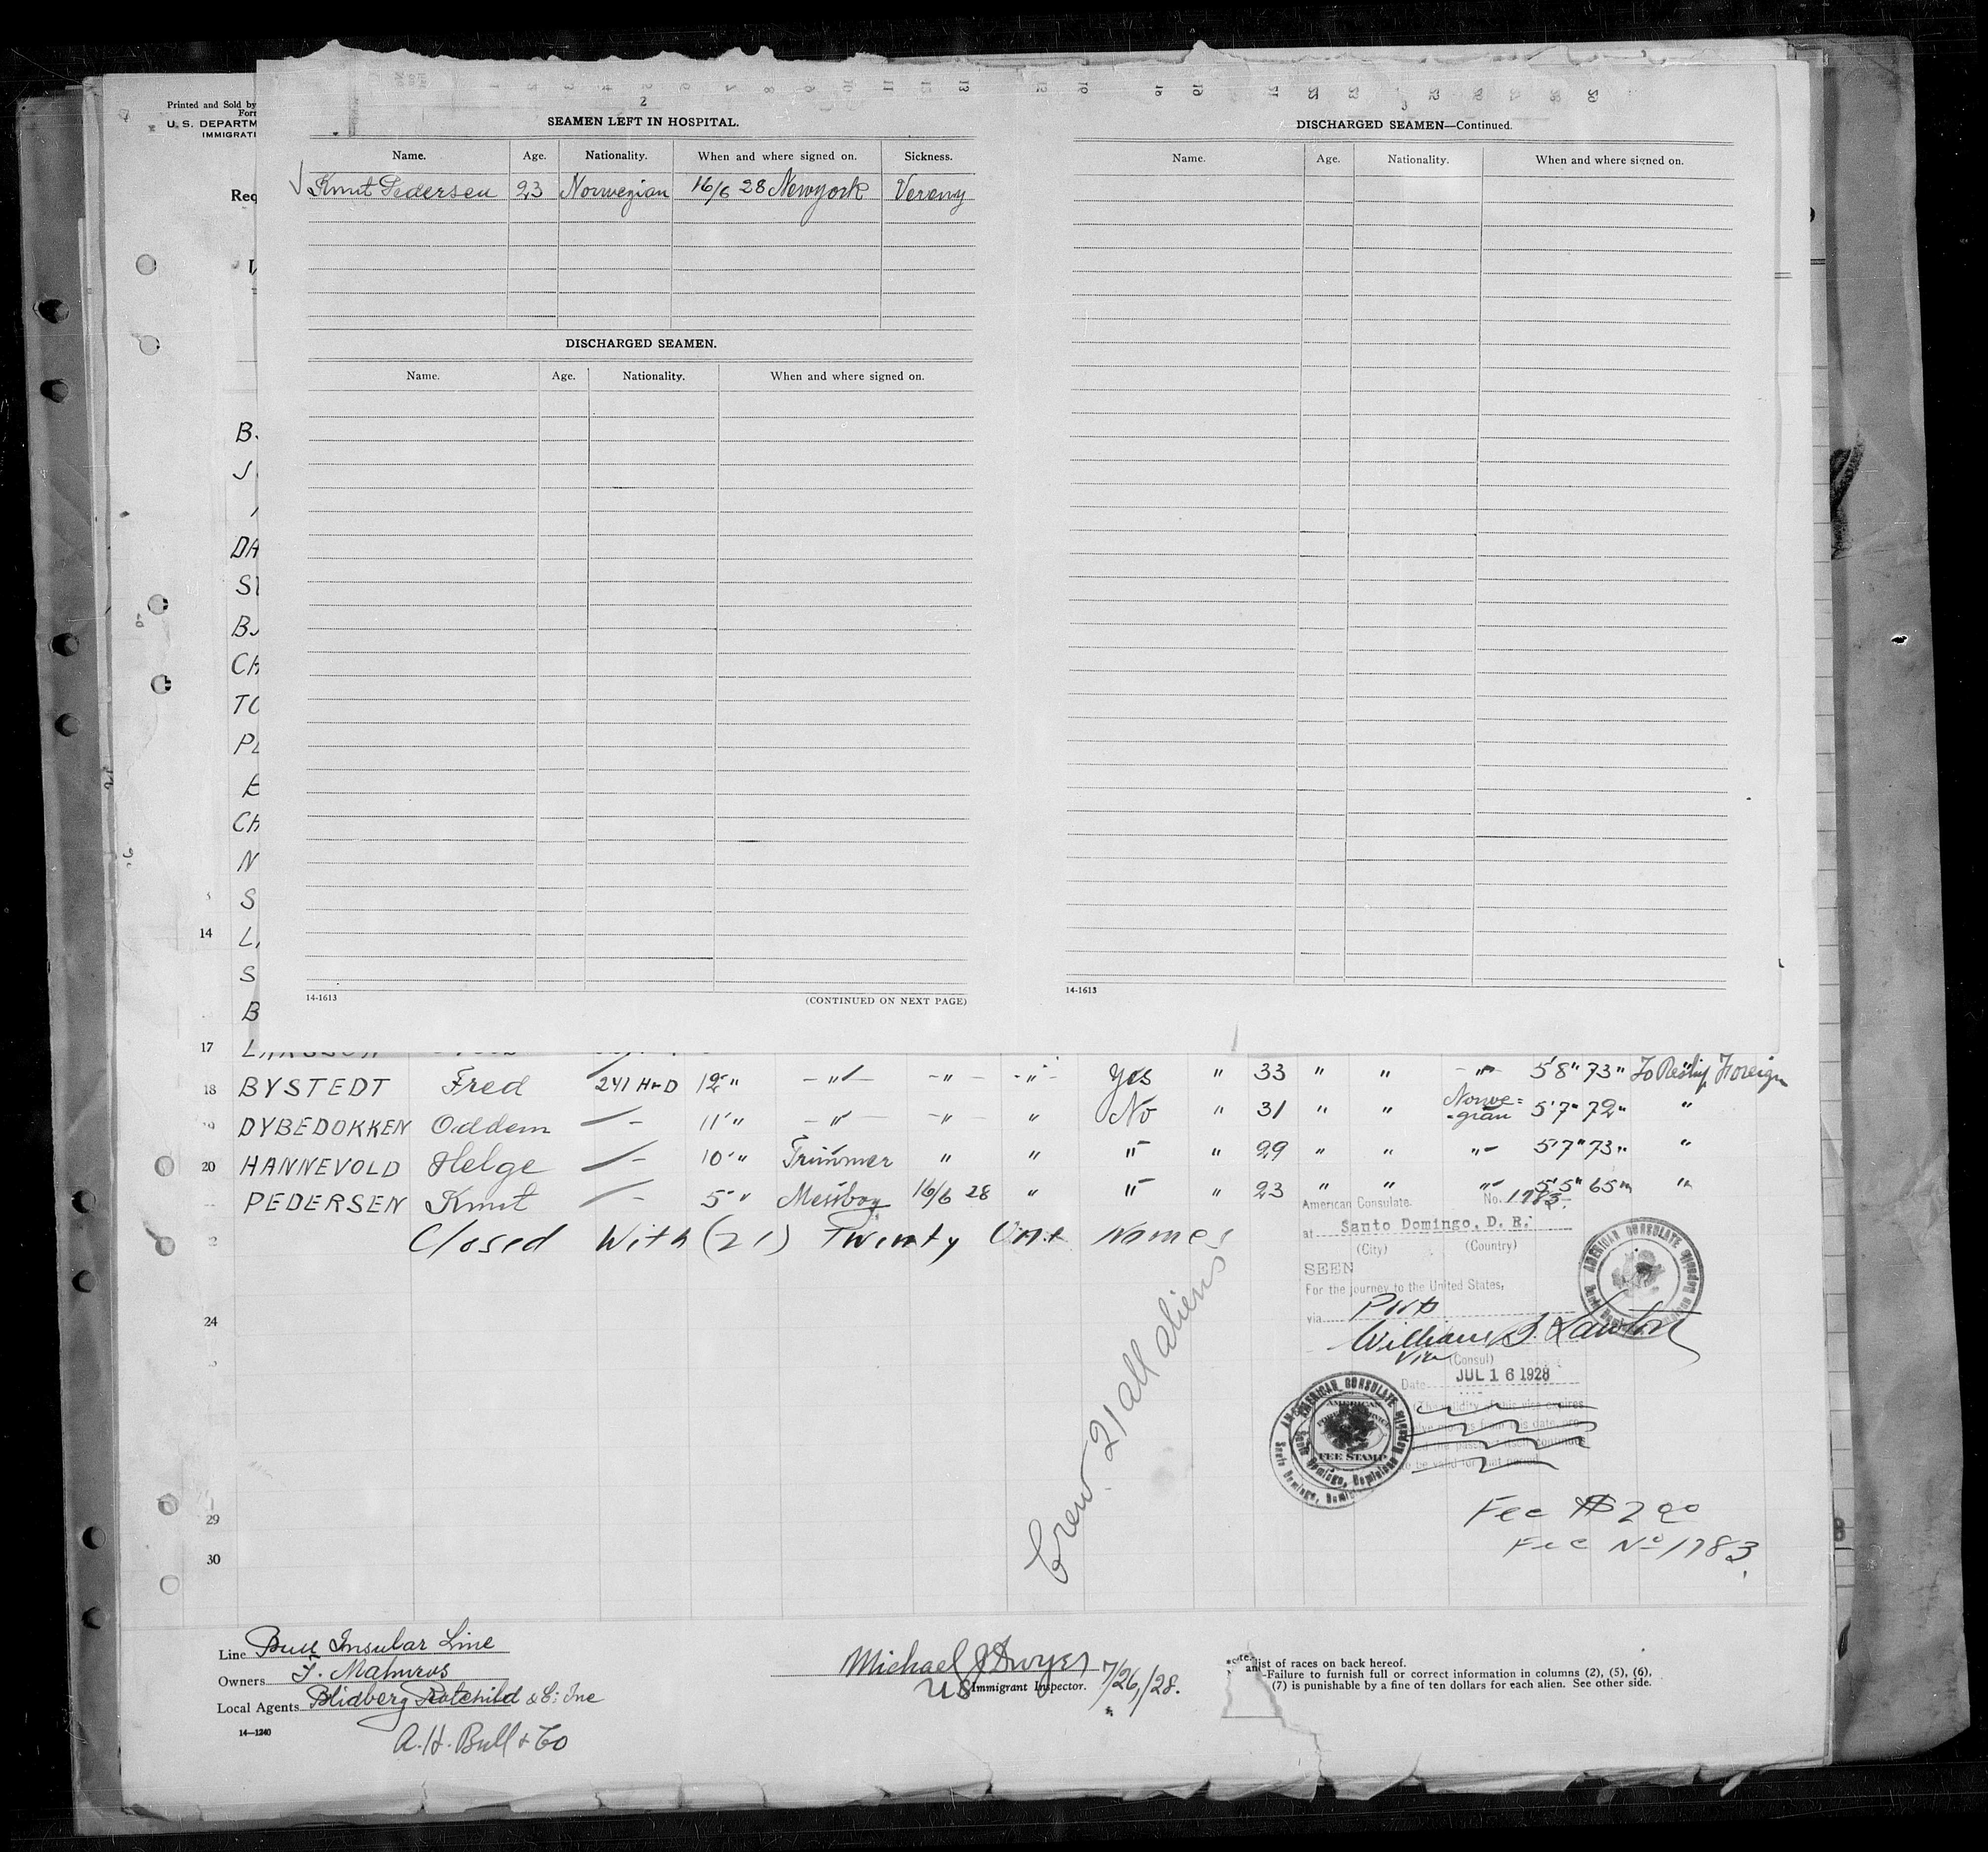 Printed and Sold by
U. S. DEPARTM
IMMIGRATI
2
SEAMEN LEFT IN HOSPITAL.
Name. Age. Nationality. When and where signed on. Sickness.
Knut Pedersen 23 Norwegian 16/6 28 Newyork
DISCHARGED SEAMEN.
Name. Age. Nationality. When and where signed on.
14-1613 (CONTINUED ON NEXT PAGE)
3
DISCHARGED SEAMEN—Continued.
Name. Age. Nationality. When and where signed on.
14-1613
Req
B
J
DA
ST
BJ
CH
TO
PE
E
CH
N
S
14 L
S
B
17
18 BYSTEDT Fred 241 H-D 12 " -"- -"- -"- Yes " 33 " " -"- 5'8" 73" To Reship Foreign
DYBEDOKKEN Oddem - 11 " -"- -"- " No " 31 " " Norwe=
-gian 5'7" 72" "
20 HANNEVOLD Helge - 10 " Trimmer " " " " 29 " " " 5'7" 73" "
PEDERSEN Knut - 5 " Messboy 16/6 28 " " " 23 " " " 5'5" 65" "
Closed With (21) Twenty One Names
Crew 21 all aliens
American Consulate. No. 1783.
at Santo Domingo, D. R.
(City) (Country)
SEEN
For the journey to the United States,
via
William B. Lawton
Vice (Consul)
Date JUL 16 1928
AMERICAN CONSULATE
AMERICAN CONSULATE
Santo Domingo, Dominican
FEE STAMP
Fee $2.00
Fee No 1783
24
29
30
Line Bull Insular Line
Owners
Local Agents Blidberg Rotchild & C: Inc
14—1240
A.H. Bull & Co
Michael J Dwyer 7/26/28.
US Immigrant Inspector.
list of races on back hereof.
—Failure to furnish full or correct information in columns (2), (5), (6),
and (7) is punishable by a fine of ten dollars for each alien. See other side.